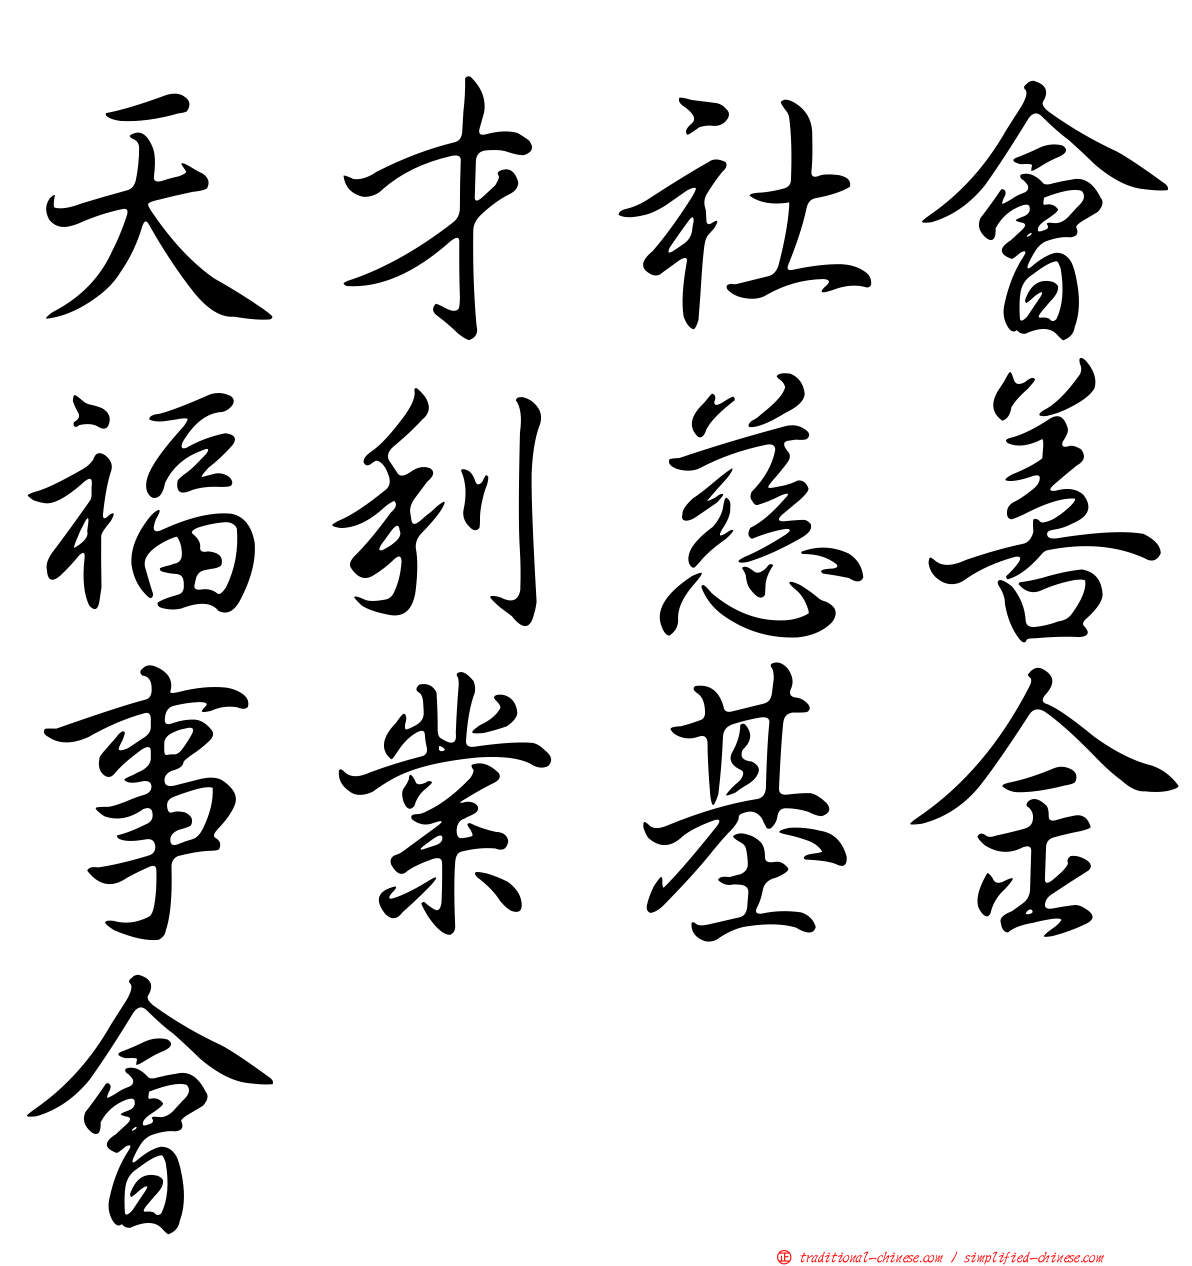 天才社會
福利慈善
事業基金
會
㊣ traditional-chinese.com / simplified-chinese.com